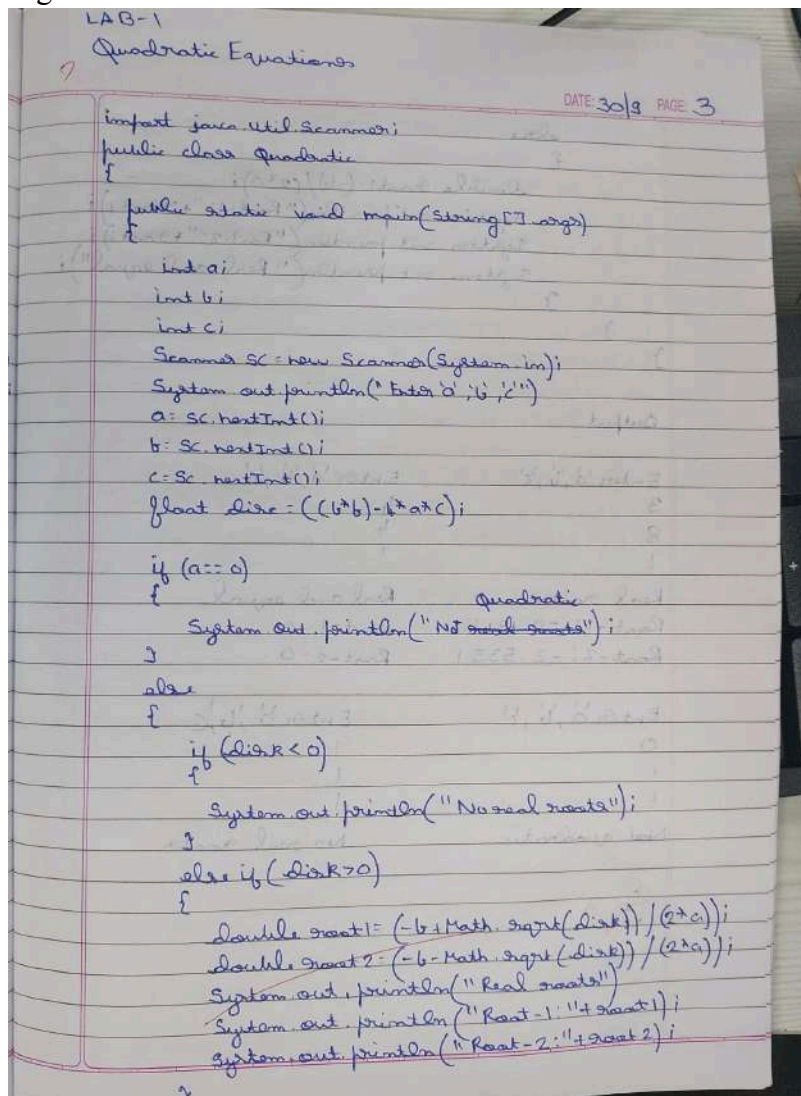 LAB-1
Quadratic Equations
DATE: 30/9 PAGE 3
import java.util.Scanner;
public class Quadratic
{
public static void main(String[] args)
{
int a;
int b;
int c;
Scanner sc = new Scanner(System.in);
System.out.println("Enter 'a','b','c'")
a= sc.nextInt();
b= sc.nextInt();
c= sc.nextInt();
float disc = ((b*b)-4*a*c);
if (a==0)
{
Quadratic
System.out.println("Not real roots");
}
else
{
if (disk<0)
{
System.out.println("No real roots");
}
else if (disk>0)
{
double root1= (-b+Math.sqrt(disk))/(2*a));
double root2= (-b-Math.sqrt(disk))/(2*a));
System.out.println("Real roots")
System.out.println("Root-1:"+root1);
System.out.println("Root-2:"+root2);
}